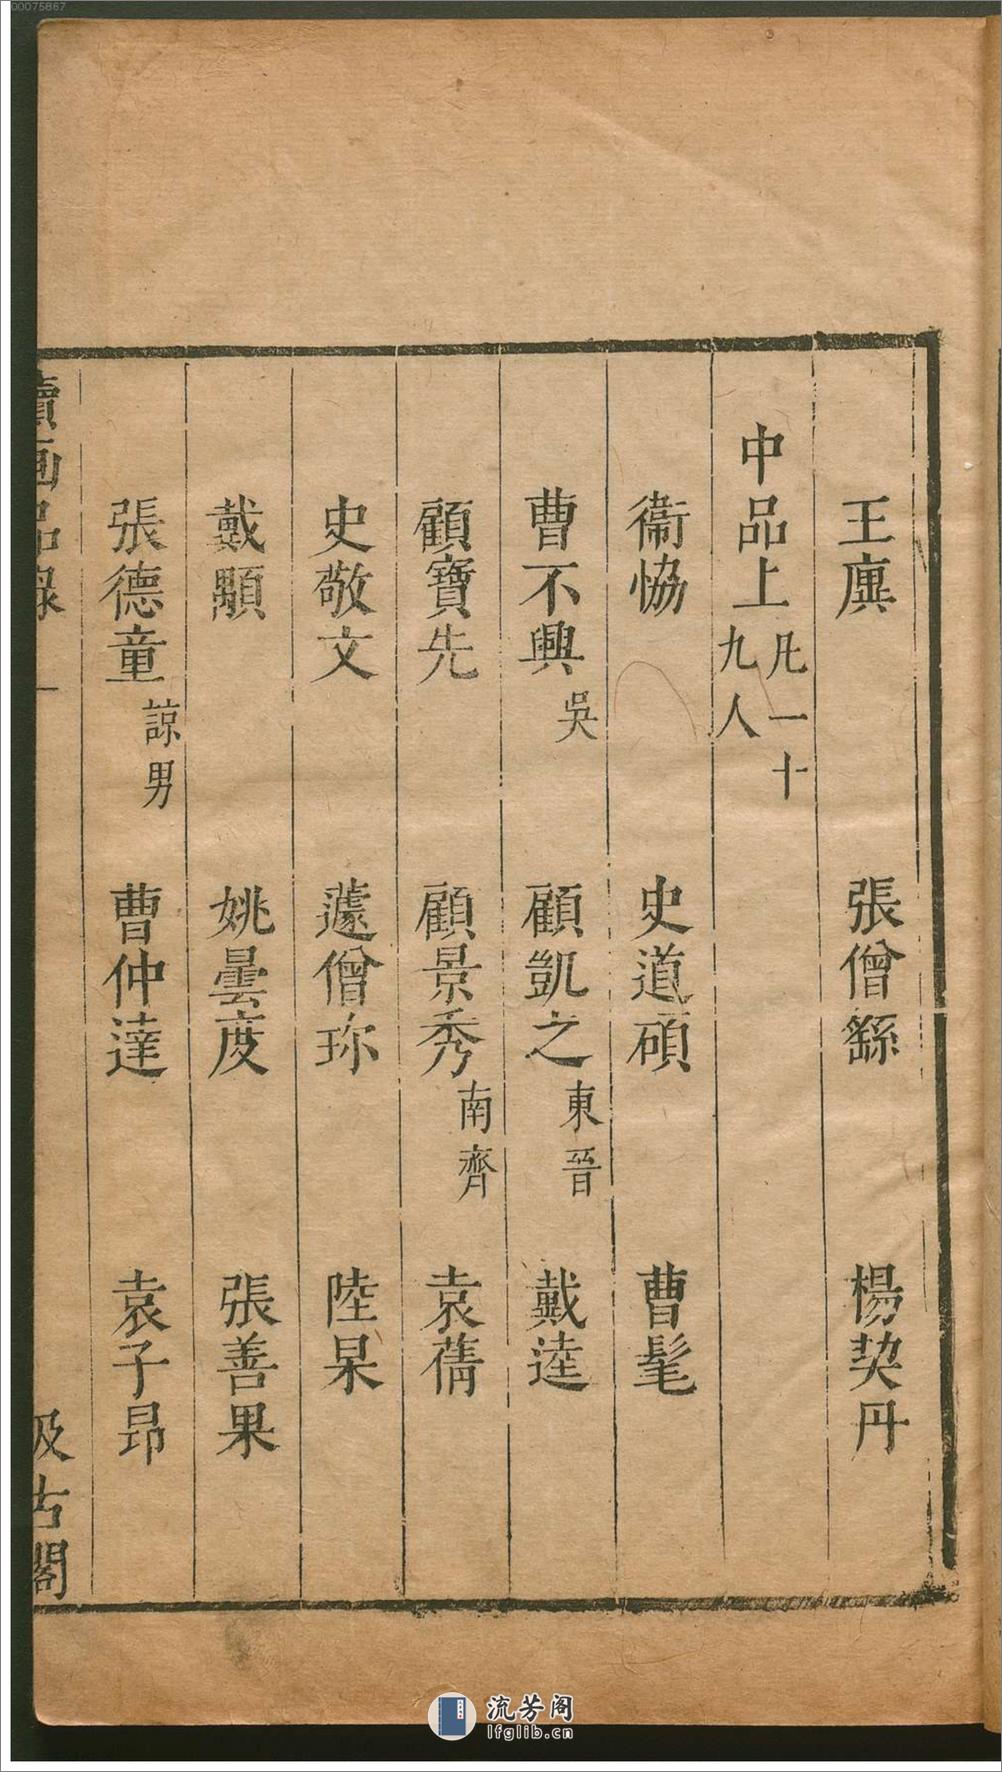 00075867
王廙 張僧繇 楊契丹
中品上 凡一十九人
衞協 史道碩 曹髦
曹不興 吳 顧凱之 東晉 戴逵
顧寶先 顧景秀 南齊 袁蒨
史敬文 蘧僧珎 陸杲
戴顒 姚曇度 張善果
張德童 諒男 曹仲達 袁子昂
續画品錄 一 汲古閣
流芳阁
lfglib.cn